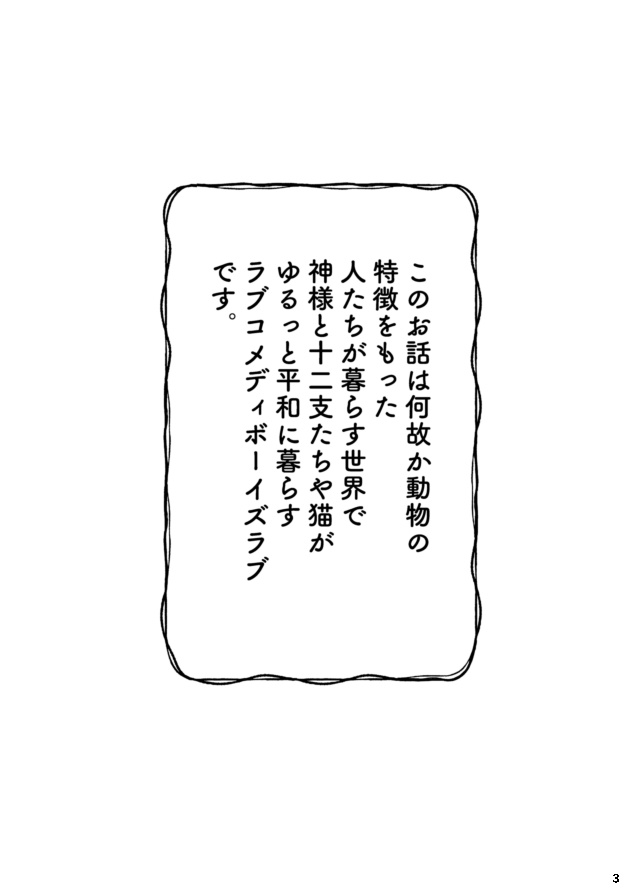 このお話は何故か動物の
特徴をもった
人たちが暮らす世界で
神様と十二支たちや猫が
ゆるっと平和に暮らす
ラブコメディボーイズラブ
です。
3